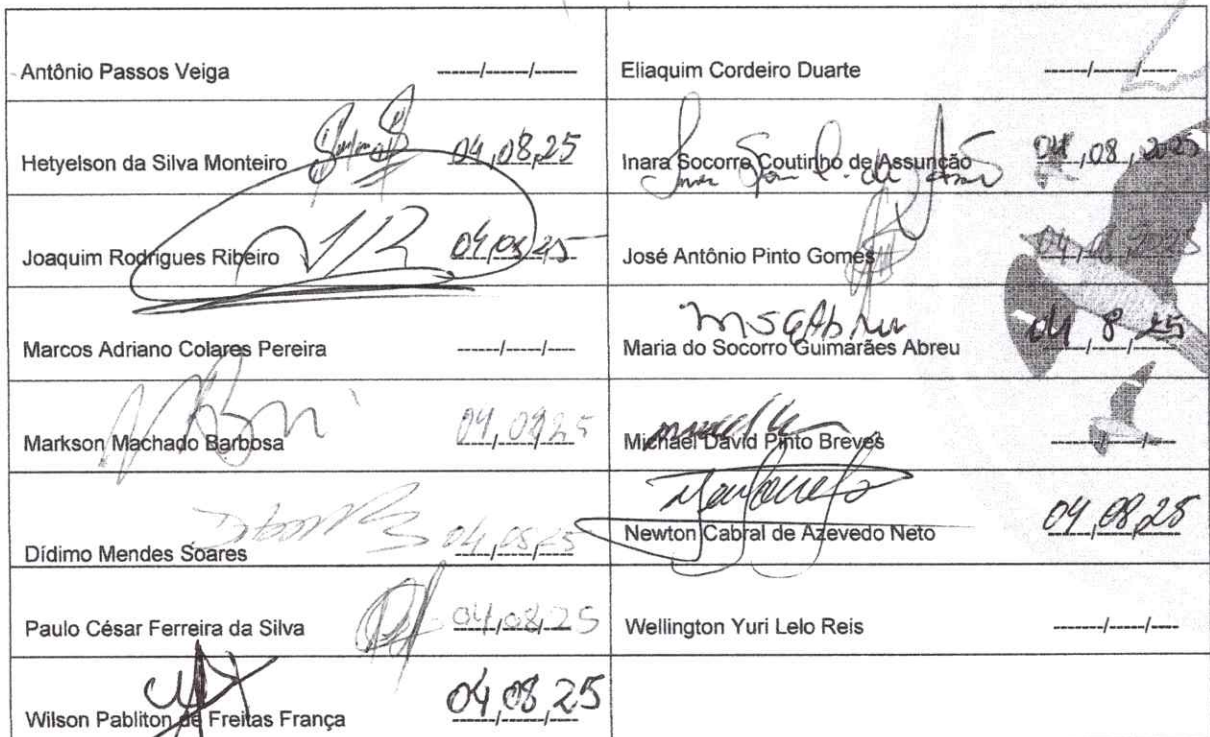 Antônio Passos Veiga ------/------/------
Eliaquim Cordeiro Duarte ------/------/-----
Hetyelson da Silva Monteiro 04,08,25
Inara Socorro Coutinho de Assunção 04,08,2025
Joaquim Rodrigues Ribeiro JR 04,08,25
José Antônio Pinto Gomes
Marcos Adriano Colares Pereira ------/------/----
MSGAbreu
Maria do Socorro Guimarães Abreu 04/8/25
Markson Machado Barbosa
Michael David Pinto Breves ------/------/----
Dídimo Mendes Soares 04,08,25
Newton Cabral de Azevedo Neto 04,08,25
Paulo César Ferreira da Silva 04,08,25
Wellington Yuri Lelo Reis ------/-----/----
Wilson Pabliton de Freitas França 04,08,25